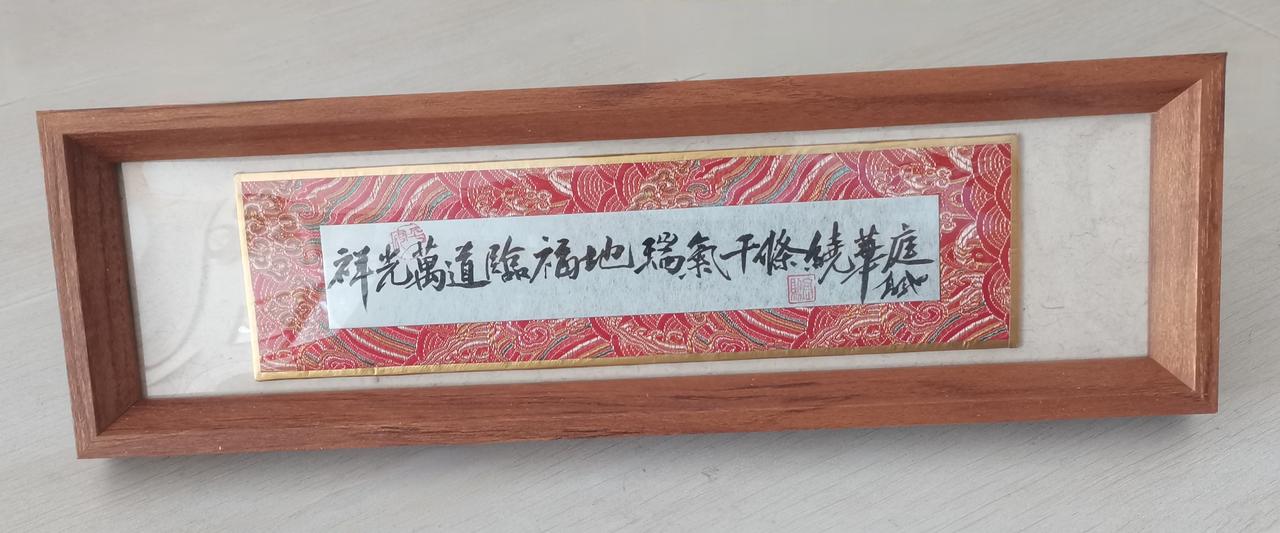 祥光萬道臨福地瑞氣千條繞華庭